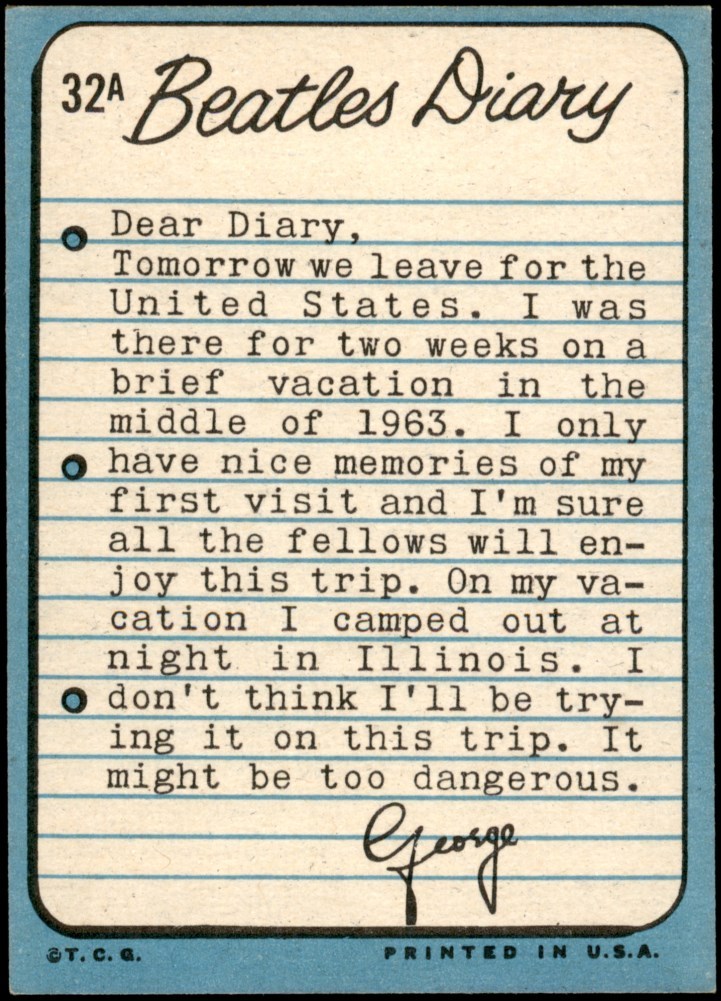 32A Beatles Diary
Dear Diary,
Tomorrow we leave for the
United States. I was
there for two weeks on a
brief vacation in the
middle of 1963. I only
have nice memories of my
first visit and I'm sure
all the fellows will en-
joy this trip. On my va-
cation I camped out at
night in Illinois. I
don't think I'll be try-
ing it on this trip. It
might be too dangerous.
George
©T.C.G. PRINTED IN U.S.A.